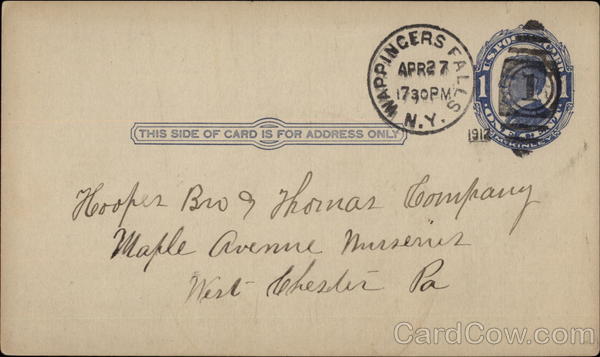 WAPPINGERS FALLS
APR 27
730 PM
N.Y.
1912
U.S. POSTAL CARD
1 1 1
ONE CENT
McKINLEY
THIS SIDE OF CARD IS FOR ADDRESS ONLY
Hooper Bro & Thomas Company
Maple Avenue Nurseries
West Chester Pa
CardCow.com